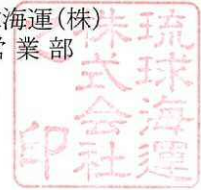 海運(株)
営業部
琉球海運
株式会社
印